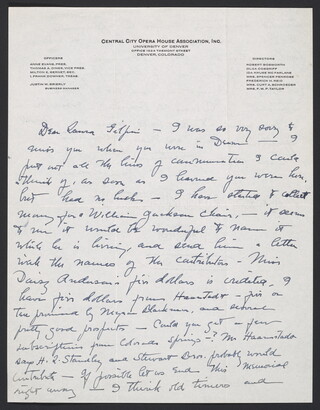 CENTRAL CITY OPERA HOUSE ASSOCIATION, INC.
UNIVERSITY OF DENVER
OFFICE 1554 TREMONT STREET
DENVER, COLORADO
OFFICERS
ANNE EVANS, PRES.
JUSTIN W. BRIERLY
BUSINESS MANAGER
DIRECTORS
ROBERT BOSWORTH
IDA KRUSE McFARLANE
MRS. SPENCER PENROSE
FREDERICK H. REID
MRS. F. M. P. TAYLOR
Dear Laura Gilpin – I was so very sorry to
miss you when you were in Denver — I
put out all the lines of communication I could
think of, as soon as I learned you were here,
but had no luck – I have started to collect
money for a William Jackson Chair, – it seems
to me it would be wonderful to name it
while he is living, and send him a letter
with the names of the contributors – Miss
Daisy Anderson's five dollars is credited, I
have five dollars from Haanstadt – five or
ten promised by Blackmer, and several
pretty good prospects – Could you get a few
subscriptions from Colorado Springs –? Mr Haanstadt
says H. L. Standley and Stewart Bros. probably would
contribute – If possible let us end this Memorial
right away – I think old timers and